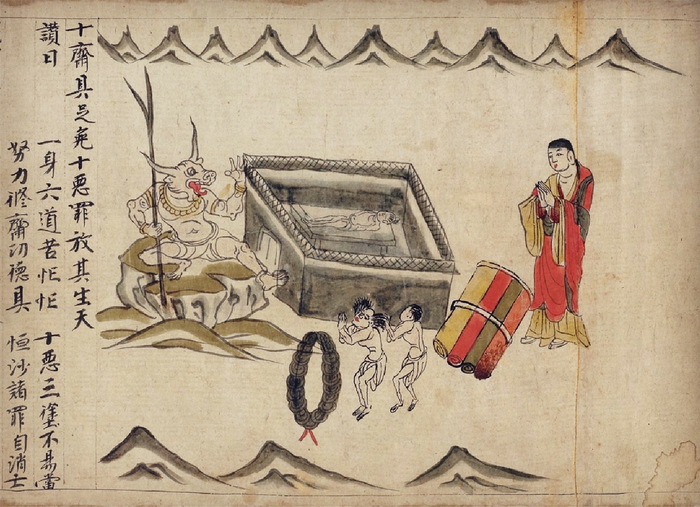 十齋具足免十惡罪放其生天
讚曰 一身六道苦忙忙 十惡三塗不易當
努力修齋功德具 恒沙諸罪自消亡